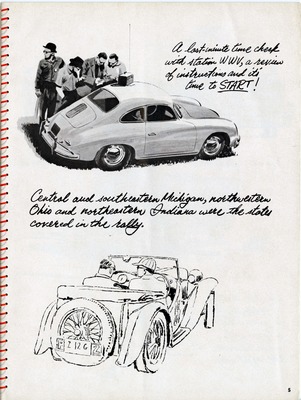 A last-minute time check
with station WWV, a review
of instructions and it's
time to START!
Central and southeastern Michigan, northwestern
Ohio and northeastern Indiana were the states
covered in the rally.
2126
5